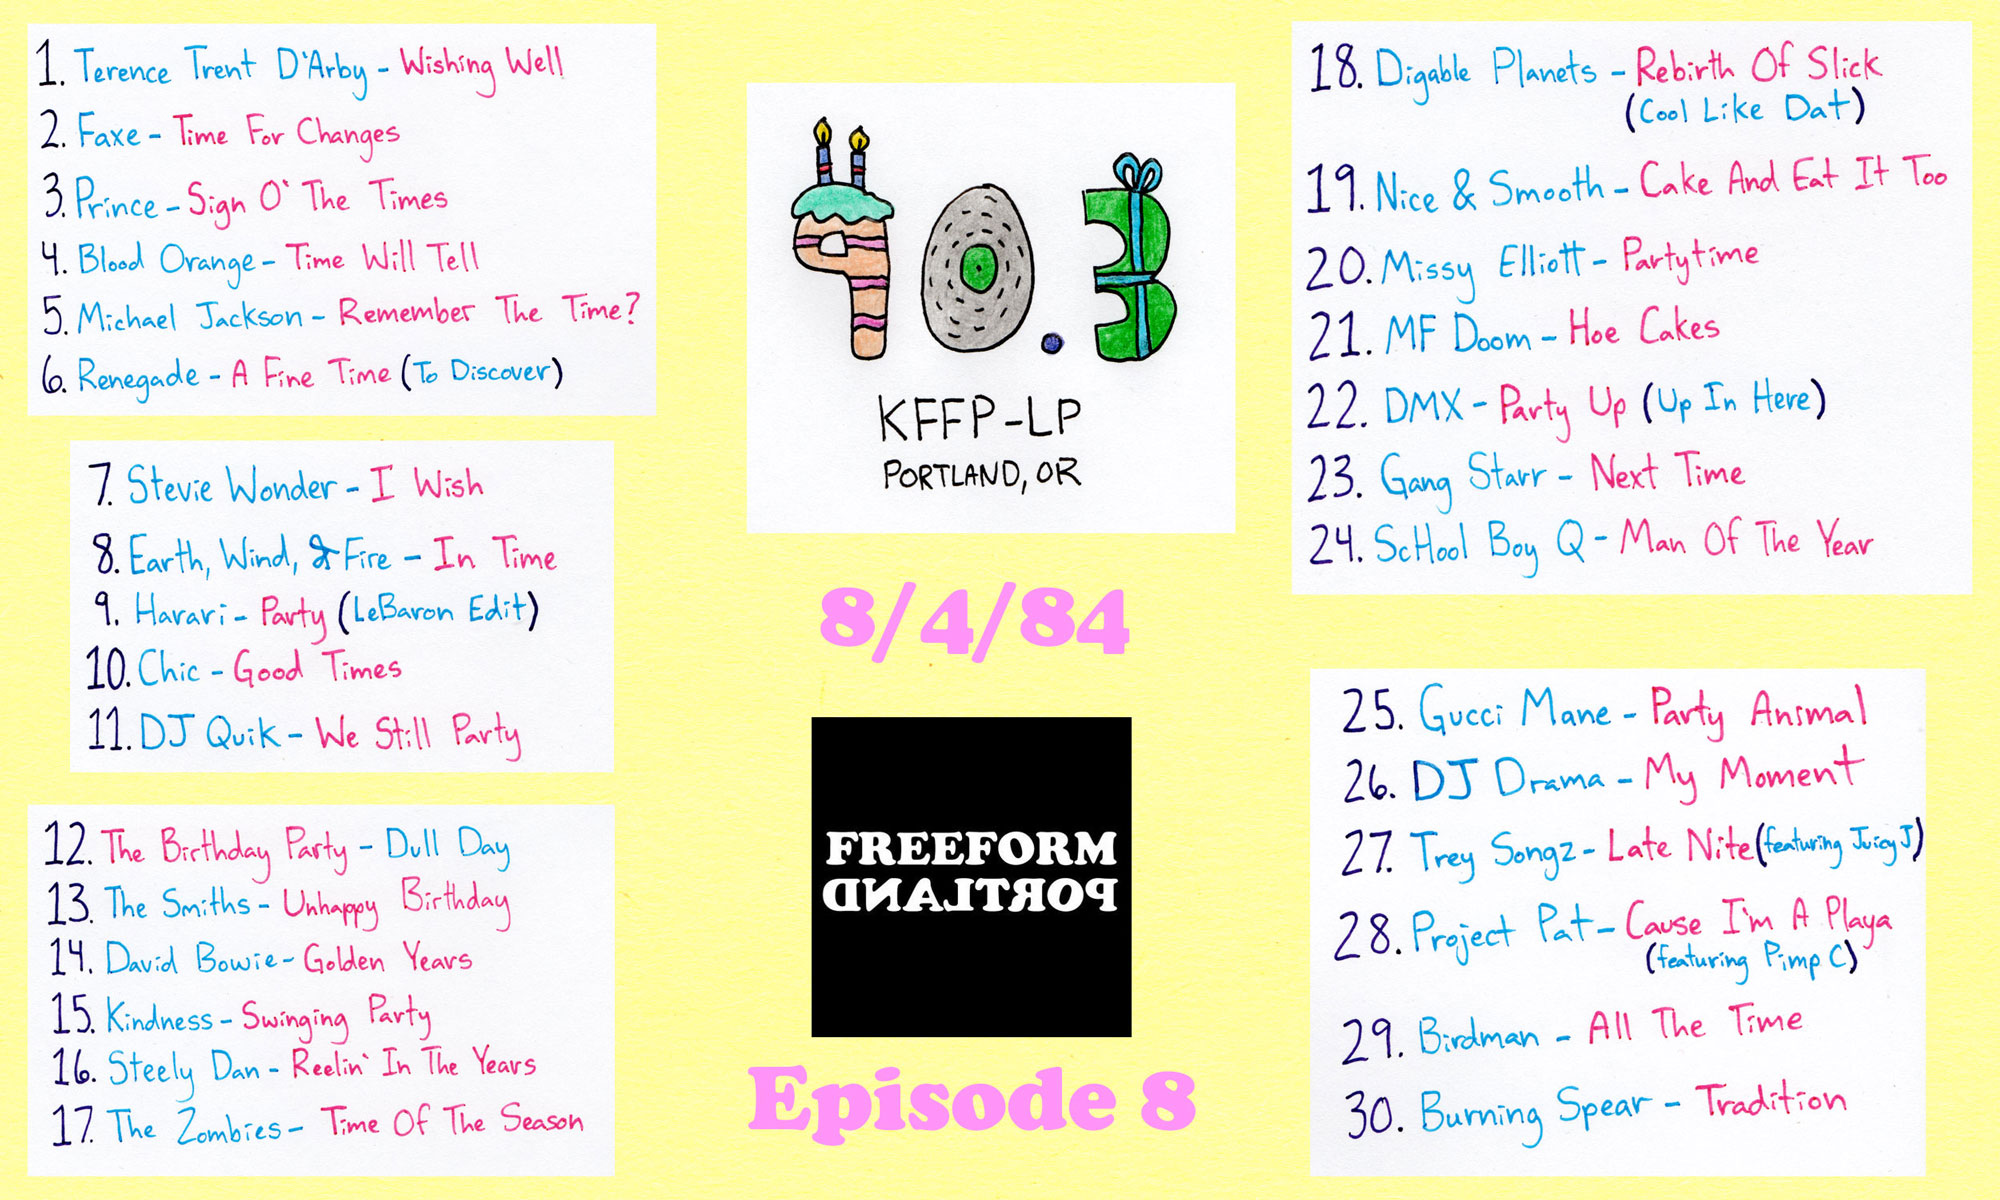 1. Terence Trent D'Arby - Wishing Well
2. Faxe - Time For Changes
3. Prince - Sign O' The Times
4. Blood Orange - Time Will Tell
5. Michael Jackson - Remember The Time?
6. Renegade - A Fine Time (To Discover)
7. Stevie Wonder - I Wish
8. Earth, Wind, & Fire - In Time
9. Harari - Party (LeBaron Edit)
10. Chic - Good Times
11. DJ Quik - We Still Party
12. The Birthday Party - Dull Day
13. The Smiths - Unhappy Birthday
14. David Bowie - Golden Years
15. Kindness - Swinging Party
16. Steely Dan - Reelin' In The Years
17. The Zombies - Time Of The Season
90.3
KFFP-LP
PORTLAND, OR
8/4/84
FREEFORM
PORTLAND
Episode 8
18. Digable Planets - Rebirth Of Slick
(Cool Like Dat)
19. Nice & Smooth - Cake And Eat It Too
20. Missy Elliott - Partytime
21. MF Doom - Hoe Cakes
22. DMX - Party Up (Up In Here)
23. Gang Starr - Next Time
24. ScHool Boy Q - Man Of The Year
25. Gucci Mane - Party Animal
26. DJ Drama - My Moment
27. Trey Songz - Late Nite (featuring Juicy J)
28. Project Pat - Cause I'm A Playa
(featuring Pimp C)
29. Birdman - All The Time
30. Burning Spear - Tradition